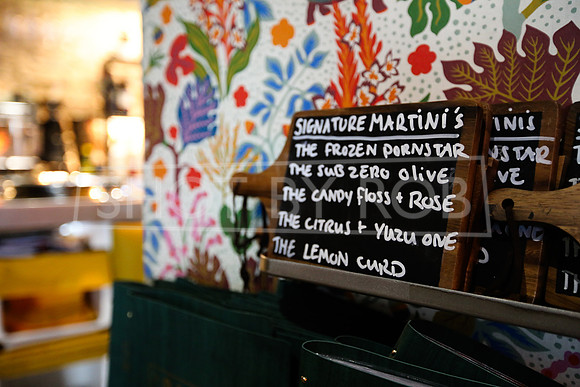 SIGNATURE MARTINI'S
THE FROZEN PORNSTAR
THE SUB ZERO OLIVE
THE CANDY FLOSS + ROSE
THE CITRUS + YUZU ONE
THE LEMON CURD
NIS
STAR
SHOT BY ROB